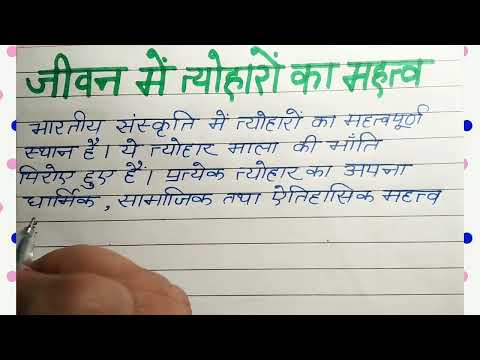 जीवन में त्योहारों का महत्व
भारतीय संस्कृति में त्योहारों का महत्वपूर्ण
स्थान है। ये त्योहार माला की भाँति
पिरोए हुए हैं। प्रत्येक त्योहार का अपना
धार्मिक, सामाजिक तथा ऐतिहासिक महत्व